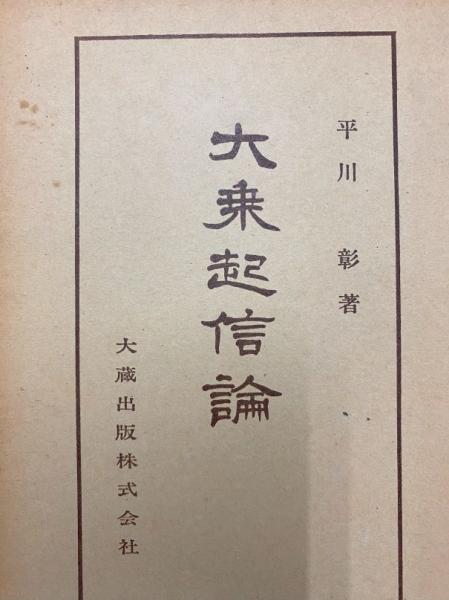 平川 彰著
大乗起信論
大蔵出版株式会社